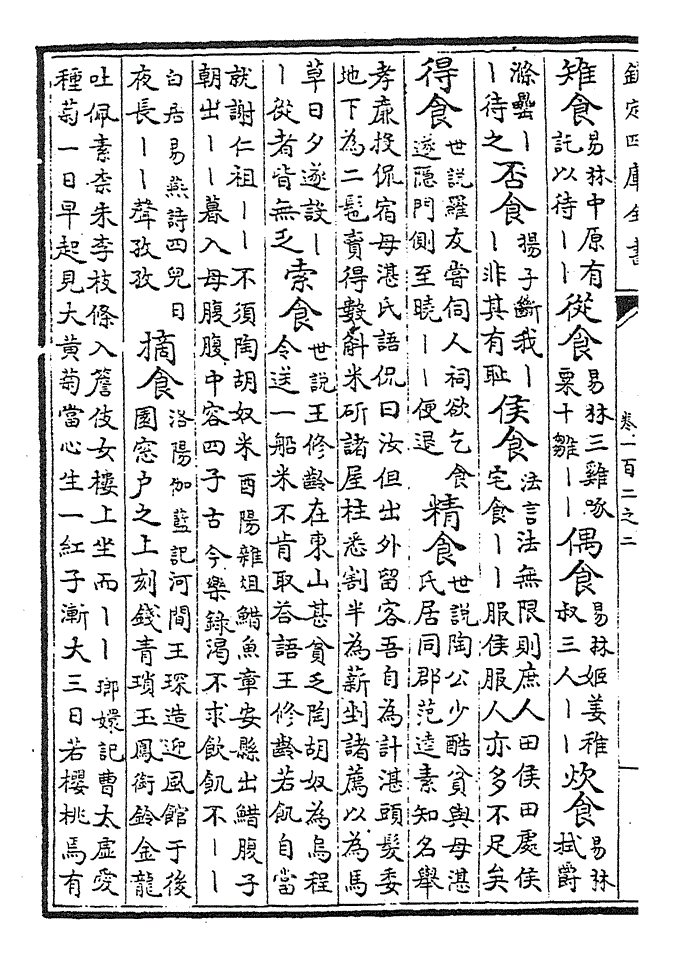 欽定四庫全書
卷一百二之二
雉食
易林中原有
訖以待丨丨
從食
易林三雞啄
粟十雛丨丨
偶食
易林姬姜稚
叔三人丨丨
炊食
易林
拭爵
滌罍丨
丨待之
否食
揚子斷我丨
丨非其有恥
侯食
法言法無限則庶人田侯田處侯
宅食丨丨服侯服人亦多不足矣
得食
世説羅友嘗伺人祠欲乞食
遂隱門側至曉丨丨便退
精食
世説陶公少酷貧與母湛
氏居同郡范逵素知名舉
孝廉投侃宿母湛氏語侃曰汝但出外留客吾自為計湛頭髮委
地下為二髢賣得數斛米斫諸屋柱悉割半為薪剉諸薦以為馬
草日夕遂設丨
丨從者皆無乏
索食
世説王修齡在東山甚貧乏陶胡奴為烏程
令送一船米不肯取荅語王修齡若飢自當
就謝仁祖丨丨不須陶胡奴米酉陽雜俎鯌魚章安縣出鯌腹子
朝出丨丨暮入母腹腹中容四子古今樂錄渴不求飲飢不丨丨
白居易燕詩四兒日
夜長丨丨聲孜孜
摘食
洛陽伽藍記河間王琛造迎風館于後
園窓户之上刻錢青瑣玉鳳銜鈴金龍
吐佩素柰朱李枝條入簷伎女樓上坐而丨丨瑯嬛記曹太虚愛
種菊一日早起見大黄菊當心生一紅子漸大三日若櫻桃焉有